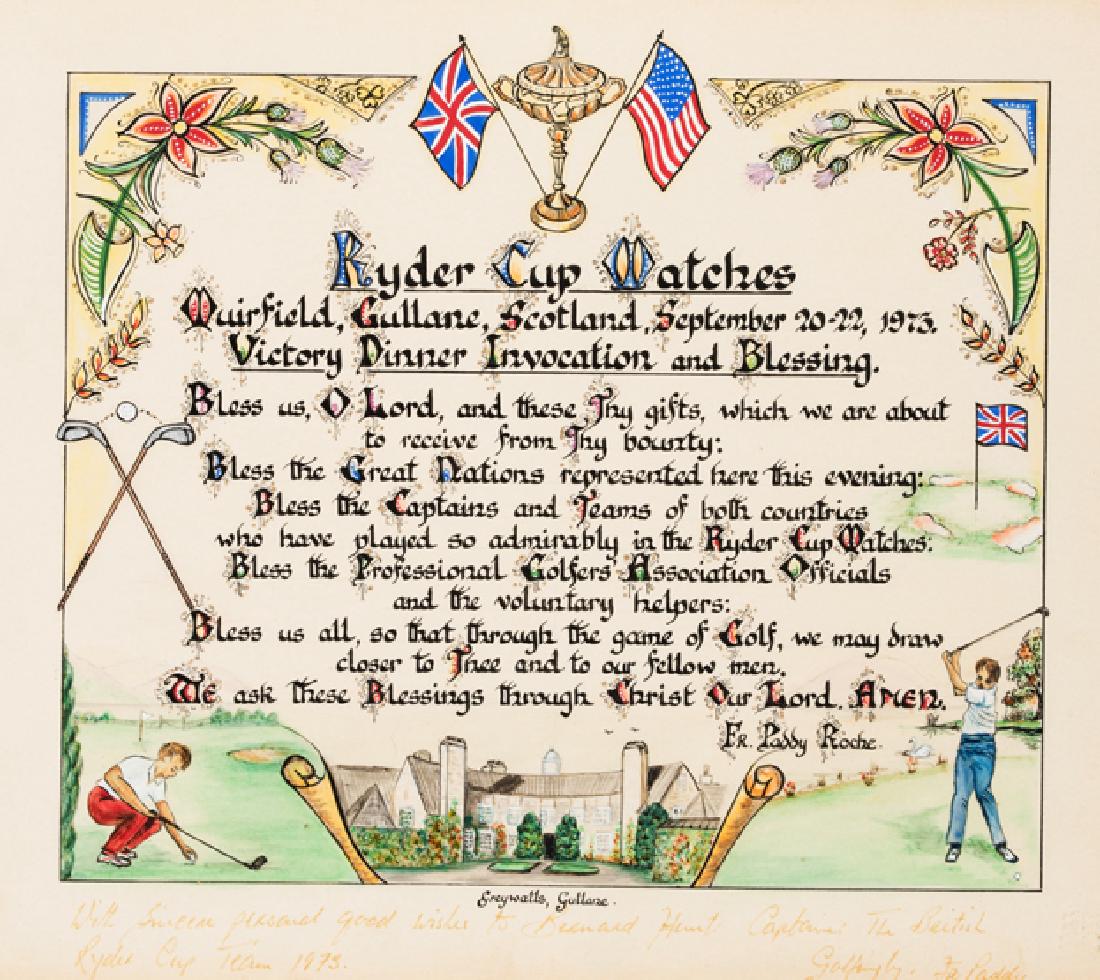 Ryder Cup Matches
Muirfield, Gullane, Scotland, September 20-22, 1973.
Victory Dinner Invocation and Blessing.
Bless us, O Lord, and these Thy gifts, which we are about
to receive from Thy bounty:
Bless the Great Nations represented here this evening:
Bless the Captains and Teams of both countries
who have played so admirably in the Ryder Cup Matches:
Bless the Professional Golfers Association Officials
and the voluntary helpers:
Bless us all, so that through the game of Golf, we may draw
closer to Thee and to our fellow men.
We ask these Blessings through Christ Our Lord. Amen.
Fr. Paddy Roche.
Greywalls, Gullane.
With Sincere personal good wishes to Bernard Hunt: Captain: The British
Ryder Cup Team 1973.
Golfingly. Fr Paddy